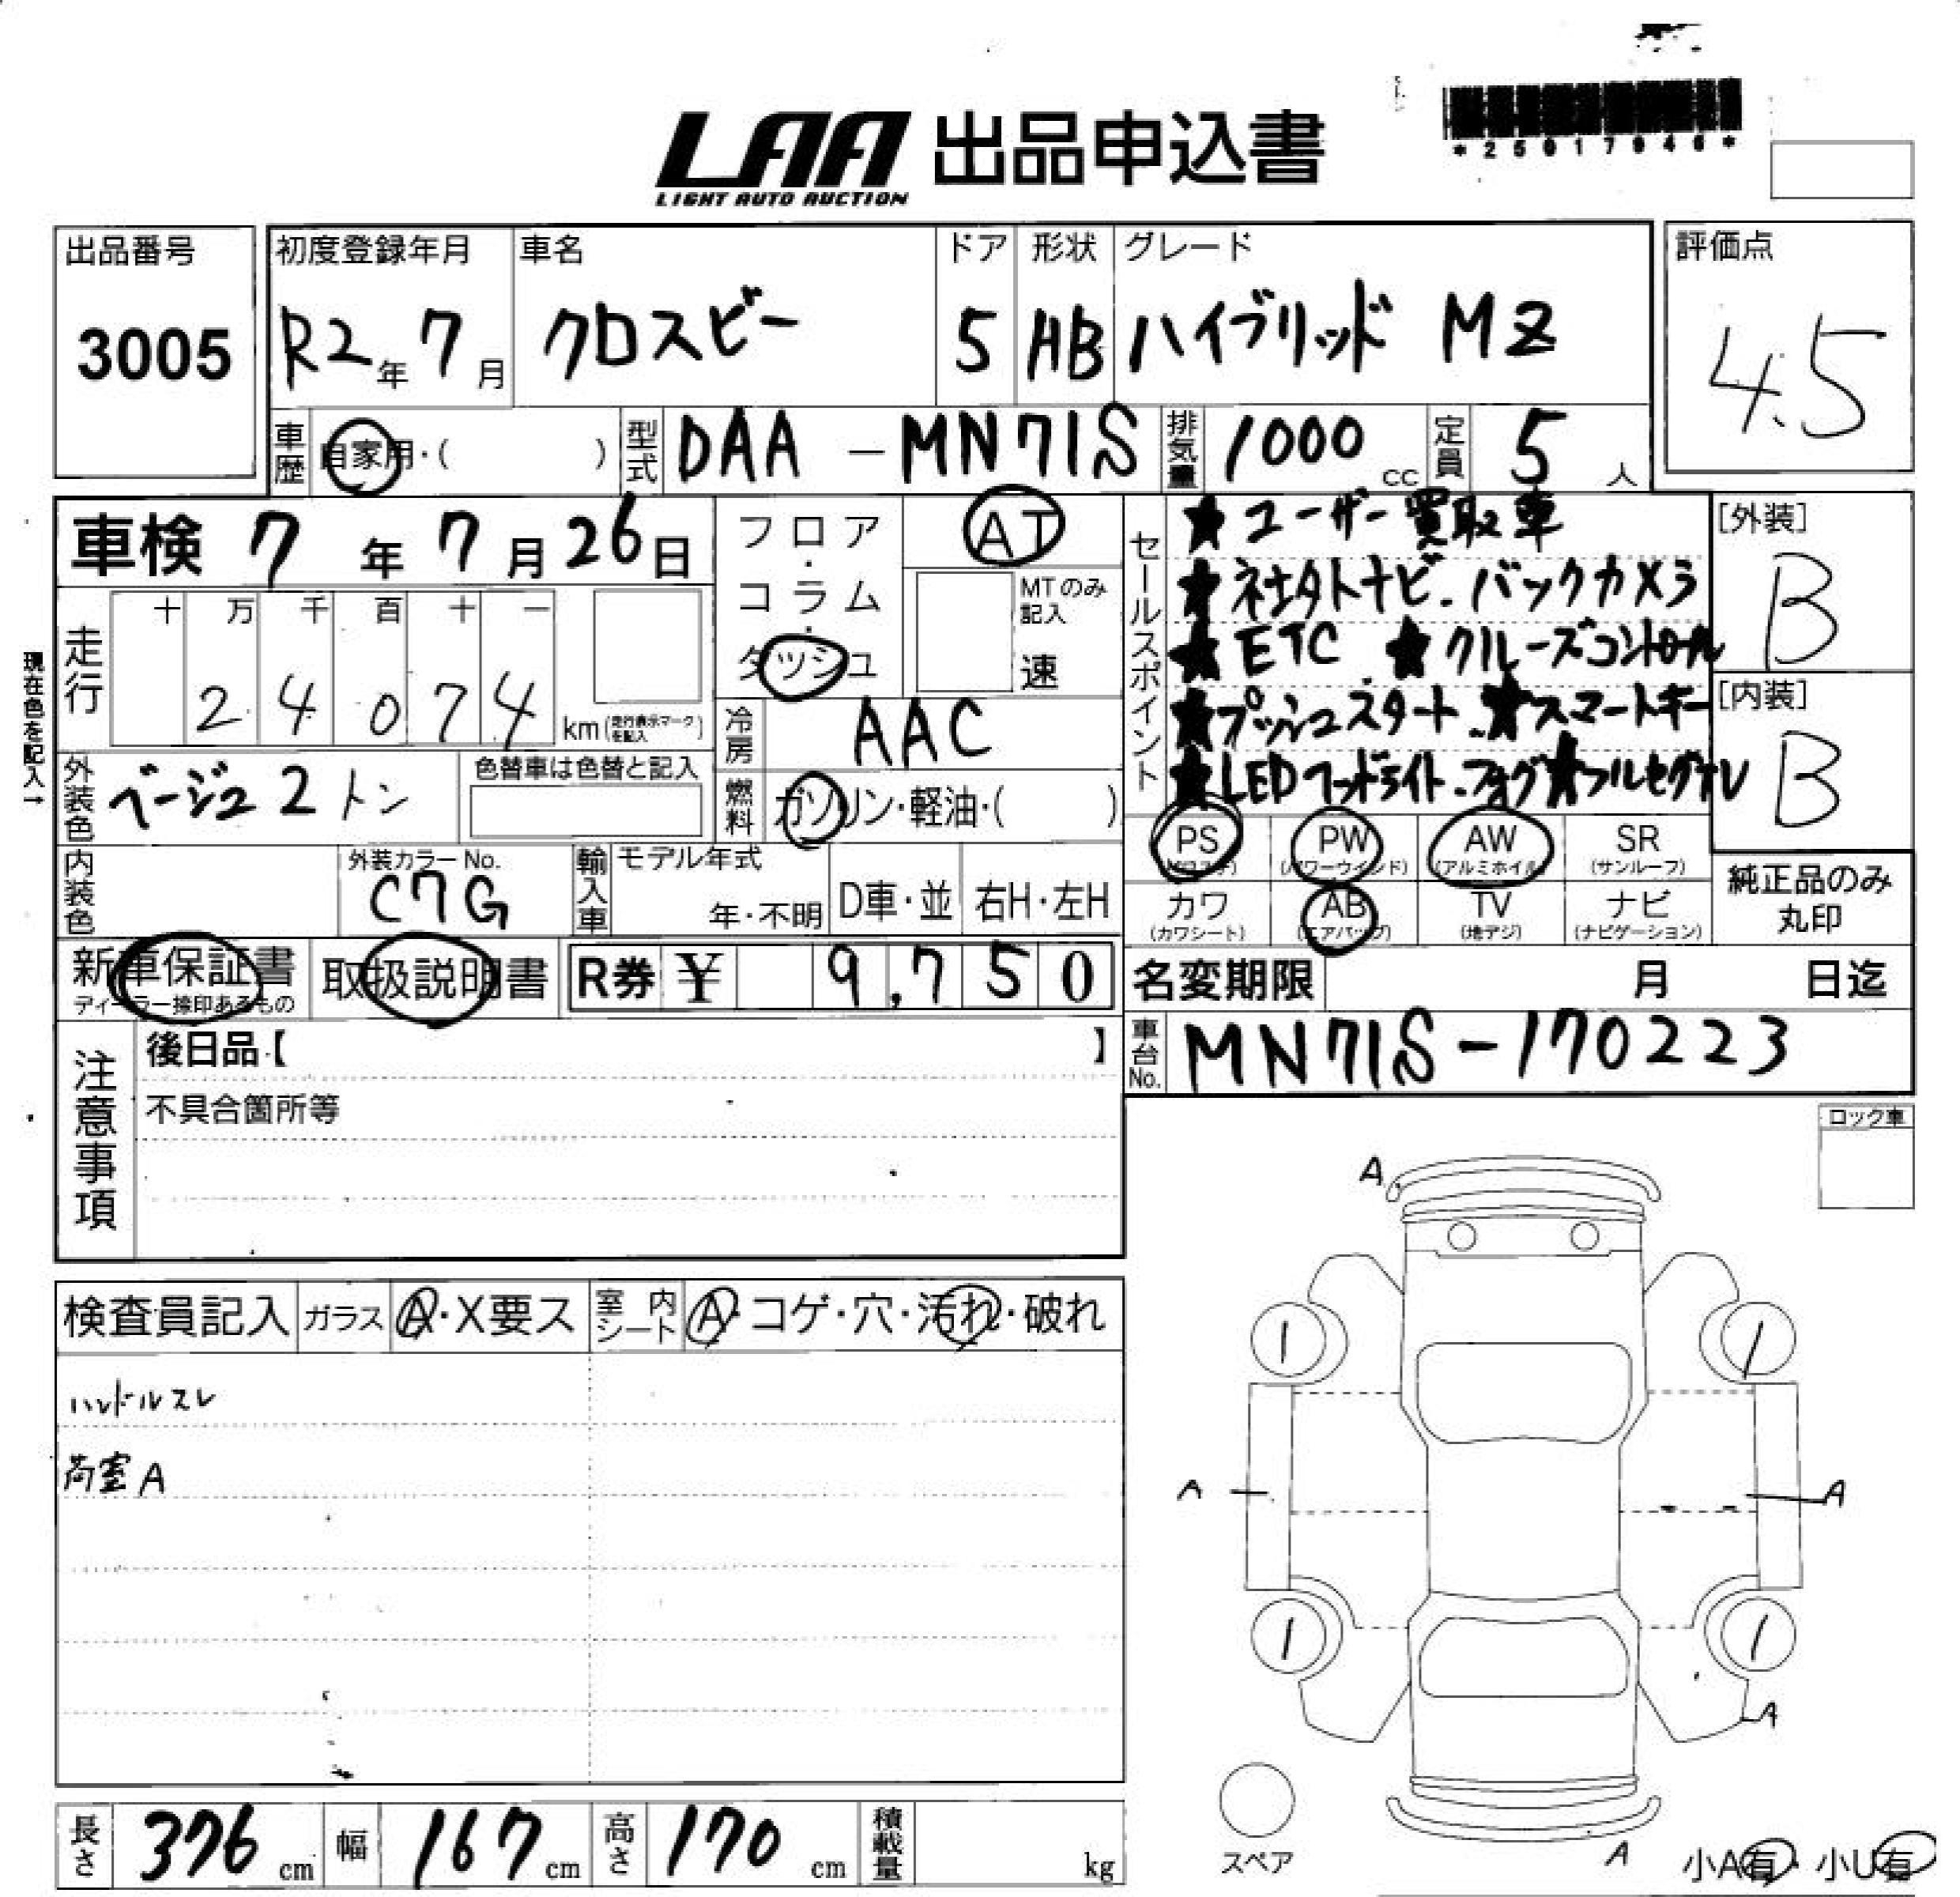 LAA 出品申込書
LIGHT AUTO AUCTION
*25017946*
出品番号
3005
初度登録年月
R2年7月
車名
クロスビー
ドア
5
形状
HB
グレード
ハイブリッド MZ
評価点
4.5
車歴
自家用・( )
型式
DAA-MN71S
排気量
1000cc
定員
5人
車検 7年7月26日
フロア・コラム・ダッシュ
AT
MTのみ記入
速
セールスポイント
★ユーザー買取車
★社外ナビ.バックカメラ
★ETC ★クルーズコントロール
★プッシュスタート.★スマートキー
★LEDヘッドライト.フォグ★フルセグTV
[外装]
B
[内装]
B
現在色を記入→
走行
十 万 千 百 十 一
2 4 0 7 4
km(走行表示マークを記入)
冷房
AAC
外装色
ベージュ2トン
色替車は色替と記入
燃料
ガソリン・軽油・( )
PS
PW
(パワーウインド)
AW
(アルミホイル)
SR
(サンルーフ)
カワ
(カワシート)
AB
(エアバッグ)
TV
(地デジ)
ナビ
(ナビゲーション)
純正品のみ
丸印
内装色
外装カラーNo.
C7G
輸入車
モデル年式
年・不明
D車・並
右H・左H
新車保証書
ディーラー捺印あるもの
取扱説明書
R券 ¥ 9,750
名変期限 月 日迄
車台No.
MN71S-170223
注意事項
後日品【 】
不具合箇所等
ロック車
検査員記入
ガラス
A・X要ス
室内シート
A・コゲ・穴・汚れ・破れ
ハンドルスレ
荷室A
A
A
A
A
A
1
1
1
1
スペア
小A有・小U有
長さ
376cm
幅
167cm
高さ
170cm
積載量
kg